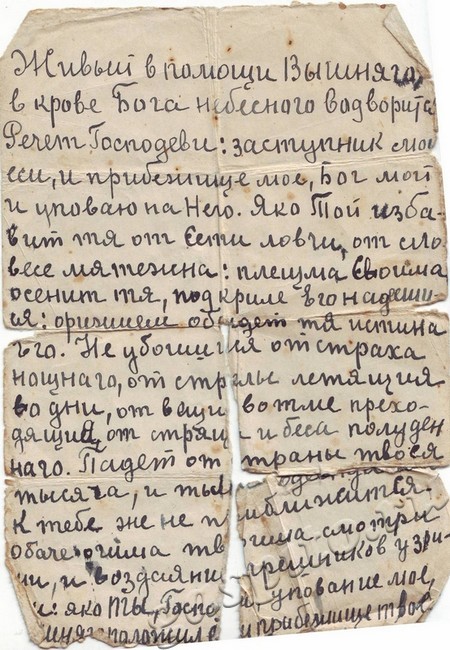 Живый в помощи Вышняго,
в крове Бога небеснаго водворитса
Речет Господеви: заступник мой
еси, и прибежище мое, Бог мой
и уповаю на Него. Яко Той изба-
вит тя от сети ловчи, от сло-
весе мятежна: плещма Своима
осенит тя, под криле его надеши-
ся: оружием обыдет тя истина
его. Не убоишися от страха
нощнаго, от стрелы летящия
во дни, от вещи во тме прехо-
дящия, от стрящ и беса полуден
наго. Падет от страны твоея
тысяча, и
к тебе же не приближится
обаче очима тв смотри
ши, и воздаяни грешников узри-
и: яко Ты, Госпо и, упование мое,
положил прибежище твое,